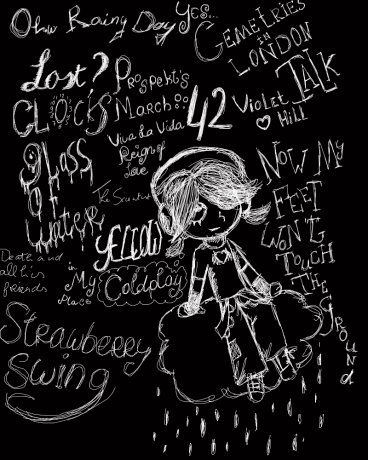 Ohw Rainy Day
YES...
CEMETRIES
IN
LONDON
Lost?
PROSPEKT'S
MARCH
CLOCKS
TALK
42
VIOLET
HILL
Viva La Vida
Reign of
Love
GLASS
OF
WATER
NOW MY
FEET
WON'T
TOUCH
THE
GROUND
The
YELLOW
Death and
all his
friends
in
My
Place
Coldplay
STRAWBERRY
SWING